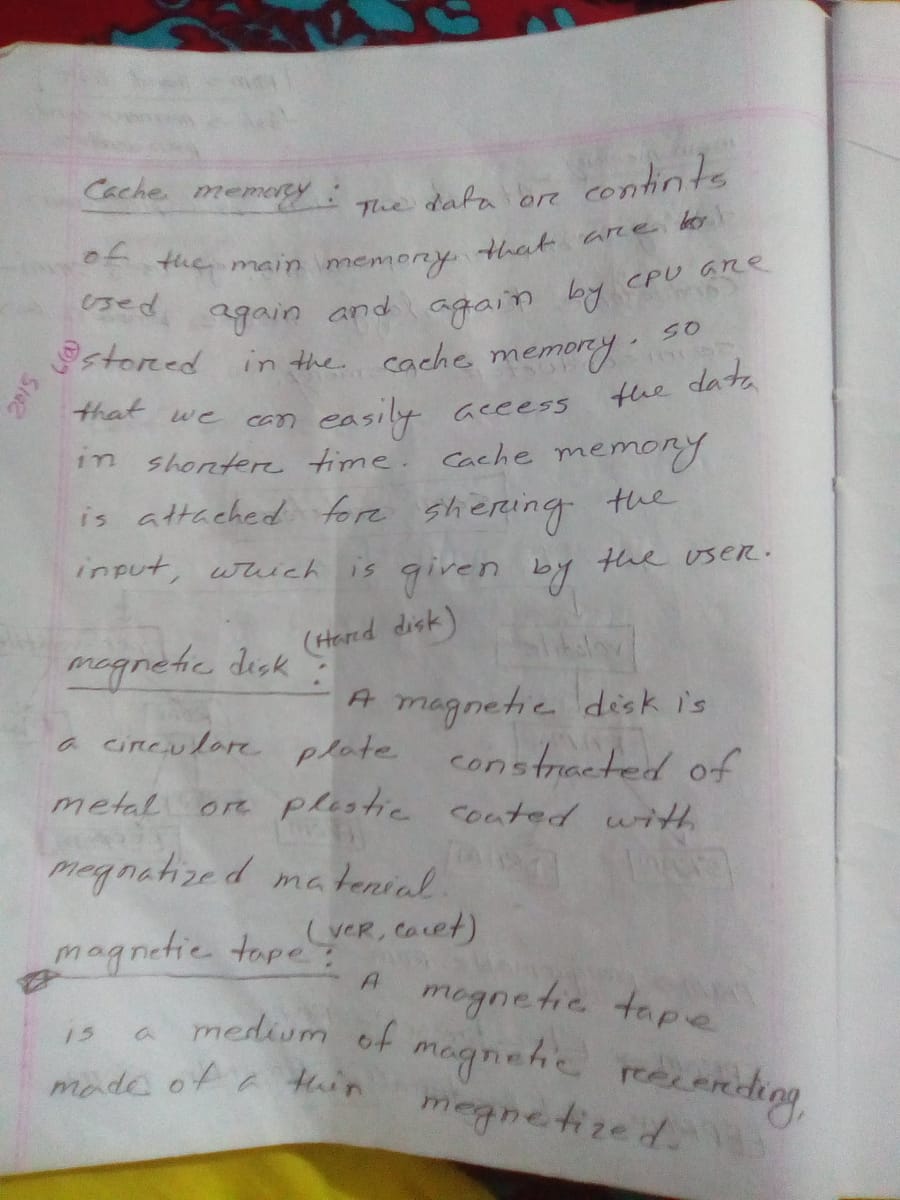 Cache memory : The data or contints
of the main memory that are
used again and again by CPU are
stored in the cache memory. so
that we can easily access the data
in shorter time. Cache memory
is attached for shering the
input, which is given by the user.
2015 6(a)
(Hard disk)
magnetic disk :
A magnetic disk is
a circular plate constracted of
metal or plastic coated with
megnatized material.
(VCR, )
magnetic tape :
A magnetic tape
is a medium of magnetic
made of a thin megnetized.